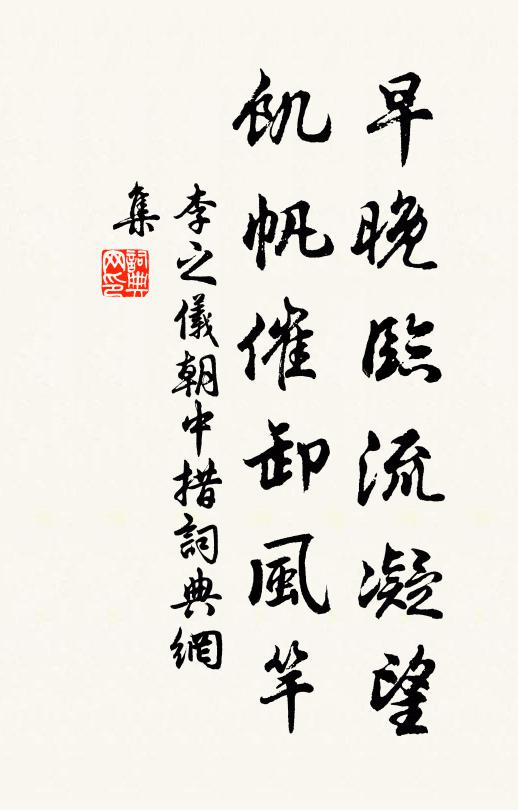 早晚臨流凝望
飢帆催卸風竿
李之儀朝中措詞典網
集
詞典
网印